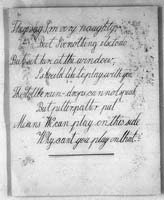 They say I'm very naughty,
But I'm nothing
But just here at the window,
I should like to play with you
The little rain-drops can not speak
But pitter patter pat
Means We can play on this side
Why can't you play on that.